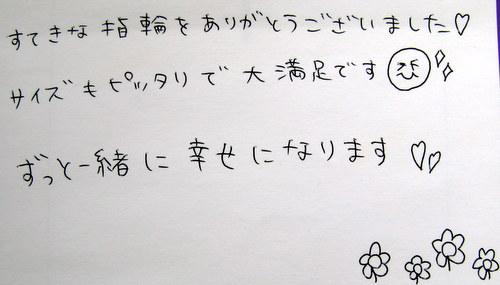 すてきな指輪をありがとうございました♡
サイズもピッタリで大満足です
ずっと一緒に幸せになります♡♡